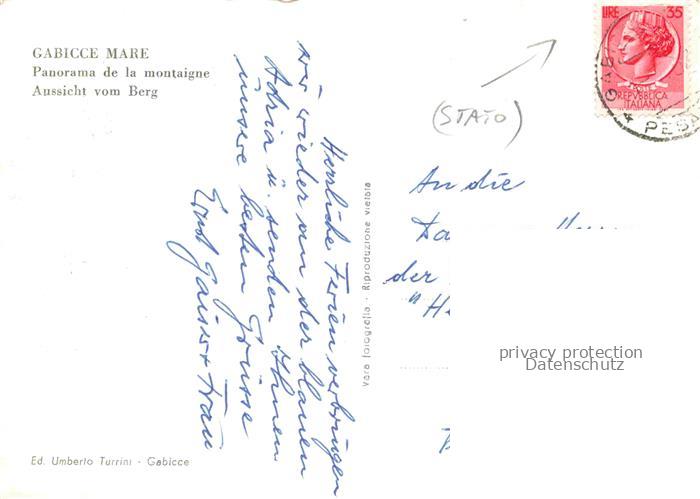 GABICCE MARE
Panorama de la montaigne
Aussicht vom Berg
Herrliche Ferien verbringen
wir wieder an der blauen
Adria u. senden Ihnen
unsere besten Grüsse
Ernst Gaiser + Frau
Ed. Umberto Turrini - Gabicce
Vera fotografia - Riproduzione vietata
(STATO)
LIRE 35
REPVBBLICA
ITALIANA
GAB
PESA
An die
der
privacy protection
Datenschutz